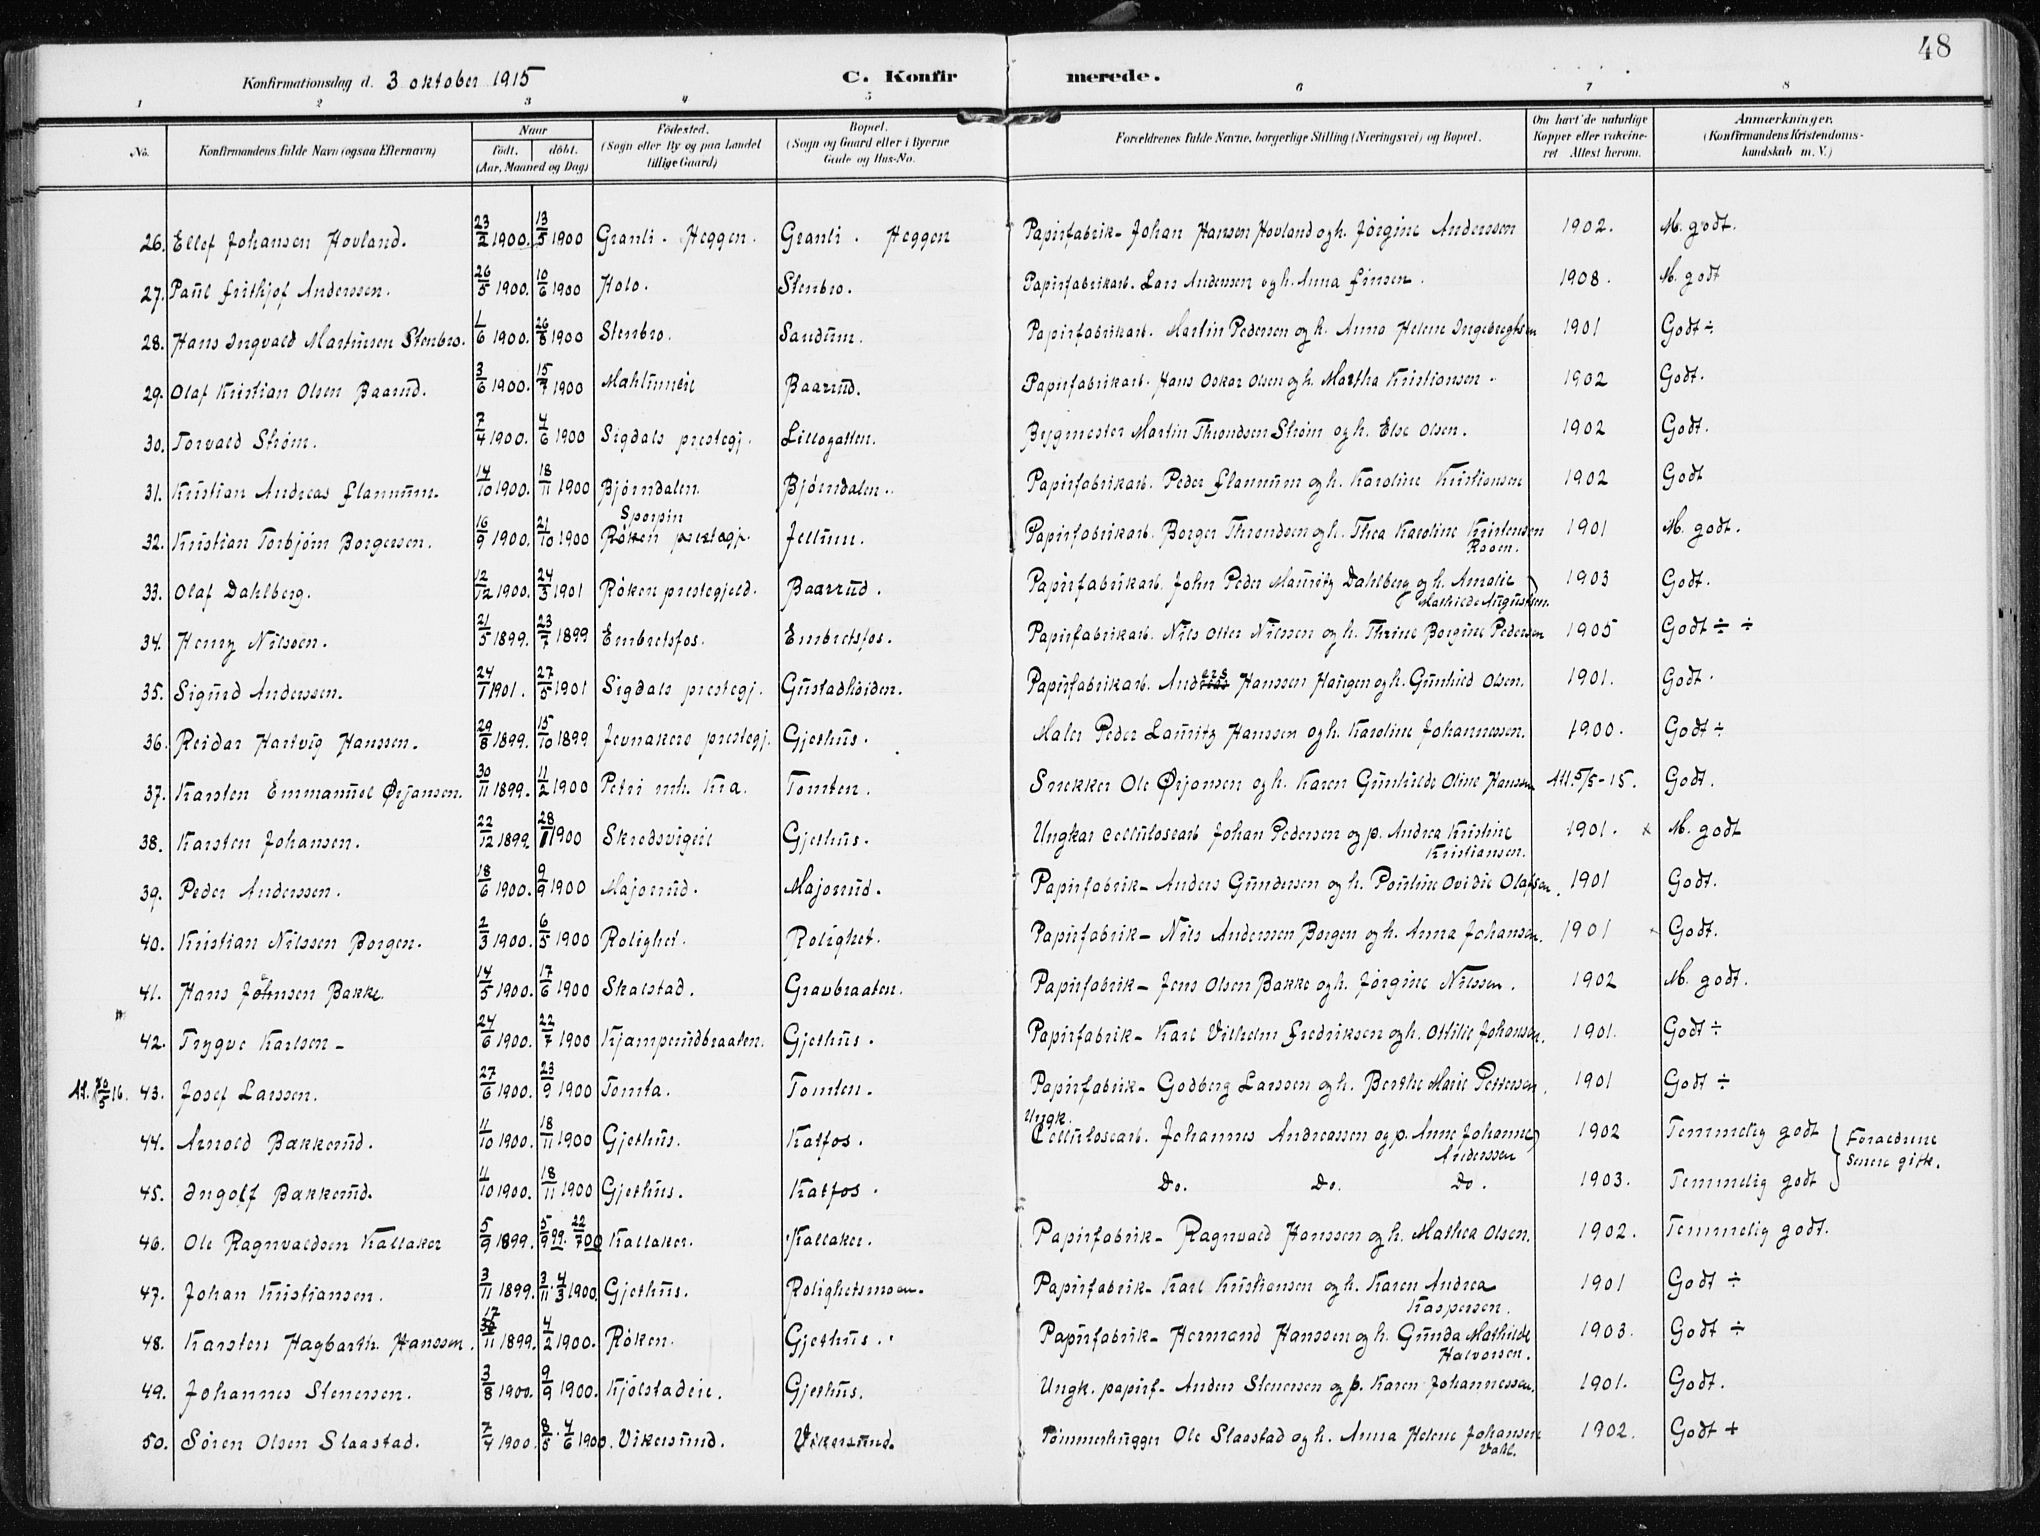 48
Konfirmationsdag d. 3 oktober 1915 C. Konfirmerede.
1 2 3 4 5 6 7 8
No. Konfirmandens fulde Navn (ogsaa Efternavn) Naar født. døbt. (Aar, Maaned og Dag) Fødested. (Sogn eller By og paa Landet tillige Gaard) Bopæl. (Sogn og Gaard eller i Byerne Gade og Hus-No. Forældrenes fulde Navne, borgerlige Stilling (Næringsvei) og Bopæl. Om havt de naturlige Kopper eller vakcineret Attest herom. Anmærkninger. (Konfirmandens Kristendomskundskab m. V.)
26. Ellef Johansen Hovland. 23/2 1900. 13/5 1900 Granli. Heggen. Granli. Heggen Papirfabrik- Johan Hansen Hovland og h. Jørgine Anderssen 1902. M. godt.
27. Paul Frithjof Anderssen. 26/5 1900. 10/6 1900 Holo. Stenbro. Papirfabrikarb. Lars Andersen og h. Anna Finsen. 1908. M. godt
28. Hans Ingvald Martinsen Stenbro. 1/6 1900. 26/8 1900 Stenbro. Sandum. Papirfabrikarb. Martin Pedersen og h. Anna Helene Ingebregtsen 1901 Godt ÷
29. Olaf Kristian Olsen Baarud. 3/6 1900. 15/7 1900 Baarud. Papirfabrikarb. Hans Oskar Olsen og h. Martha Kristiansen. 1902 Godt.
30. Torvald Strøm. 7/4 1900. 4/6 1900 Sigdals prestegj. Lillogatten. Bygmester Martin Throndsen Strøm og h. Else Olsen. 1902 Godt.
31. Kristian Andreas Flannum. 14/10 1900. 18/11 1900 Bjørndalen. Bjørndalen. Papirfabrikarb. Peder Flannum og h. Karoline Kristiansen 1902 Godt
32. Kristian Torbjørn Borgersen. 16/9 1900. 21/10 1900 Sporpin Røken prestegj. Jellum. Papirfabrikarb. Borger Throndsen og h. Thea Karoline Kristensen Roen. 1901 M. godt.
33. Olaf Dahlberg. 12/12 1900. 24/3 1901 Røken prestegjeld. Baarrud. Papirfabrikarb. John Peder Mauritz Dahlberg og h. Amalie Mathilde Augustsen. 1903 Godt.
34. Henry Nilsson. 21/5 1899. 23/7 1899 Embretsfos. Embretsfos. Papirfabrikarb. Nils Otter Nilssen og h. Thrine Borgine Pedersen 1905 Godt ÷ ÷
35. Sigurd Anderssen. 24/1 1901. 27/5 1901 Sigdals prestegj. Gustadhøiden. Papirfabrikarb. Anders Hanssen Haugen og h. Gunhild Olsen. 1901. Godt.
36. Reidar Hartvig Hanssen. 29/8 1899. 15/10 1899 Jevnakers prestegj. Gjethus. Maler Peder Lauritz Hanssen og h. Karoline Johannessen. 1900. Godt ÷
37. Karsten Emmanuel Ørjansen. 30/11 1899. 11/2 1900 Petri mh. Kra. Tomten. Snekker Ole Ørjansen og h. Karen Gunhilde Oline Hanssen Att. 5/5-15. Godt.
38. Karsten Johansen. 22/12 1899. 28/1 1900 Skredsvigeie Gjethus. Ungkar cellulosearb Johan Pedersen og p. Andrea Kristine Kristiansen. 1901. x M. godt
39. Peder Anderssen. 18/6 1900. 9/9 1900 Majorud. Majorud. Papirfabrik- Anders Gundersen og h. Pouline Ovidie Olafsen. 1901 Godt.
40. Kristian Nilssen Borgen. 2/3 1900. 6/5 1900 Rolighet. Rolighet. Papirfabrik- Nils Anderssen Borgen og h. Anna Johansen. 1901 x Godt.
41. Hans Johnsen Bakke. 14/5 1900. 17/6 1900 Skalstad. Gravbraaten. Papirfabrik- Jens Olsen Bakke og h. Jørgine Nilssen. 1902 M. godt.
42. Trygve Karlsen- 24/6 1900. 22/7 1900 Kjamperudbraaten. Gjethus. Papirfabrik- Karl Vilhelm Fredriksen og h. Othilie Johansen. 1901. Godt ÷
At. 20/5 16. 43. Josef Larssen. 27/6 1900. 23/9 1900 Tomta. Tomten. Papirfabrik- Godberg Larssen og h. Berthe Marie Pettersen. 1901 Godt ÷
44. Arnold Bakkerud. 11/10 1900. 18/11 1900 Gjethus. Katfos. Ungk. Cellulosearb. Johannes Andreassen og p. Anne Johanne Anderssen 1902 Temmelig godt Forældrene senere gift.
45. Ingolf Bakkerud. 11/10 1900. 18/11 1900 Gjethus. Katfos. Do. Do. Do. 1903. Temmelig godt
46. Ole Ragnvaldsen Kallaker 5/9 1899. 5/9 99. 22/7 00 Kallaker. Kallaker. Papirfabrik- Ragnvald Hanssen og h. Mathea Olsen. 1902. Temmelig godt.
47. Johan Kristiansen. 3/11 1899. 3/11. 4/3 1900. Gjethus. Rolighetsmoen. Papirfabrik- Karl Kristiansen og h. Karen Andrea Kaspersen. 1901 Godt ÷
48. Karsten Hagbarth Hanssen. 17/11 1899. 4/2 1900. Røken. Gjethus. Papirfabrik- Hermand Hanssen og h. Gunda Mathilde Halvorsen. 1903. Godt ÷
49. Johannes Stenersen. 3/8 1900. 9/9 1900. Kjølstadeie. Gjethus. Ungk. papirf- Anders Stenersen og p. Karen Johannessen. 1901. Godt.
50. Søren Olsen Slaastad. 7/4 1900. 8/5. 4/6 1900. Vikersund. Vikersund. Tømmerhugger Ole Slaastad og h. Anna Helene Johansen Dahl. 1902. Godt +